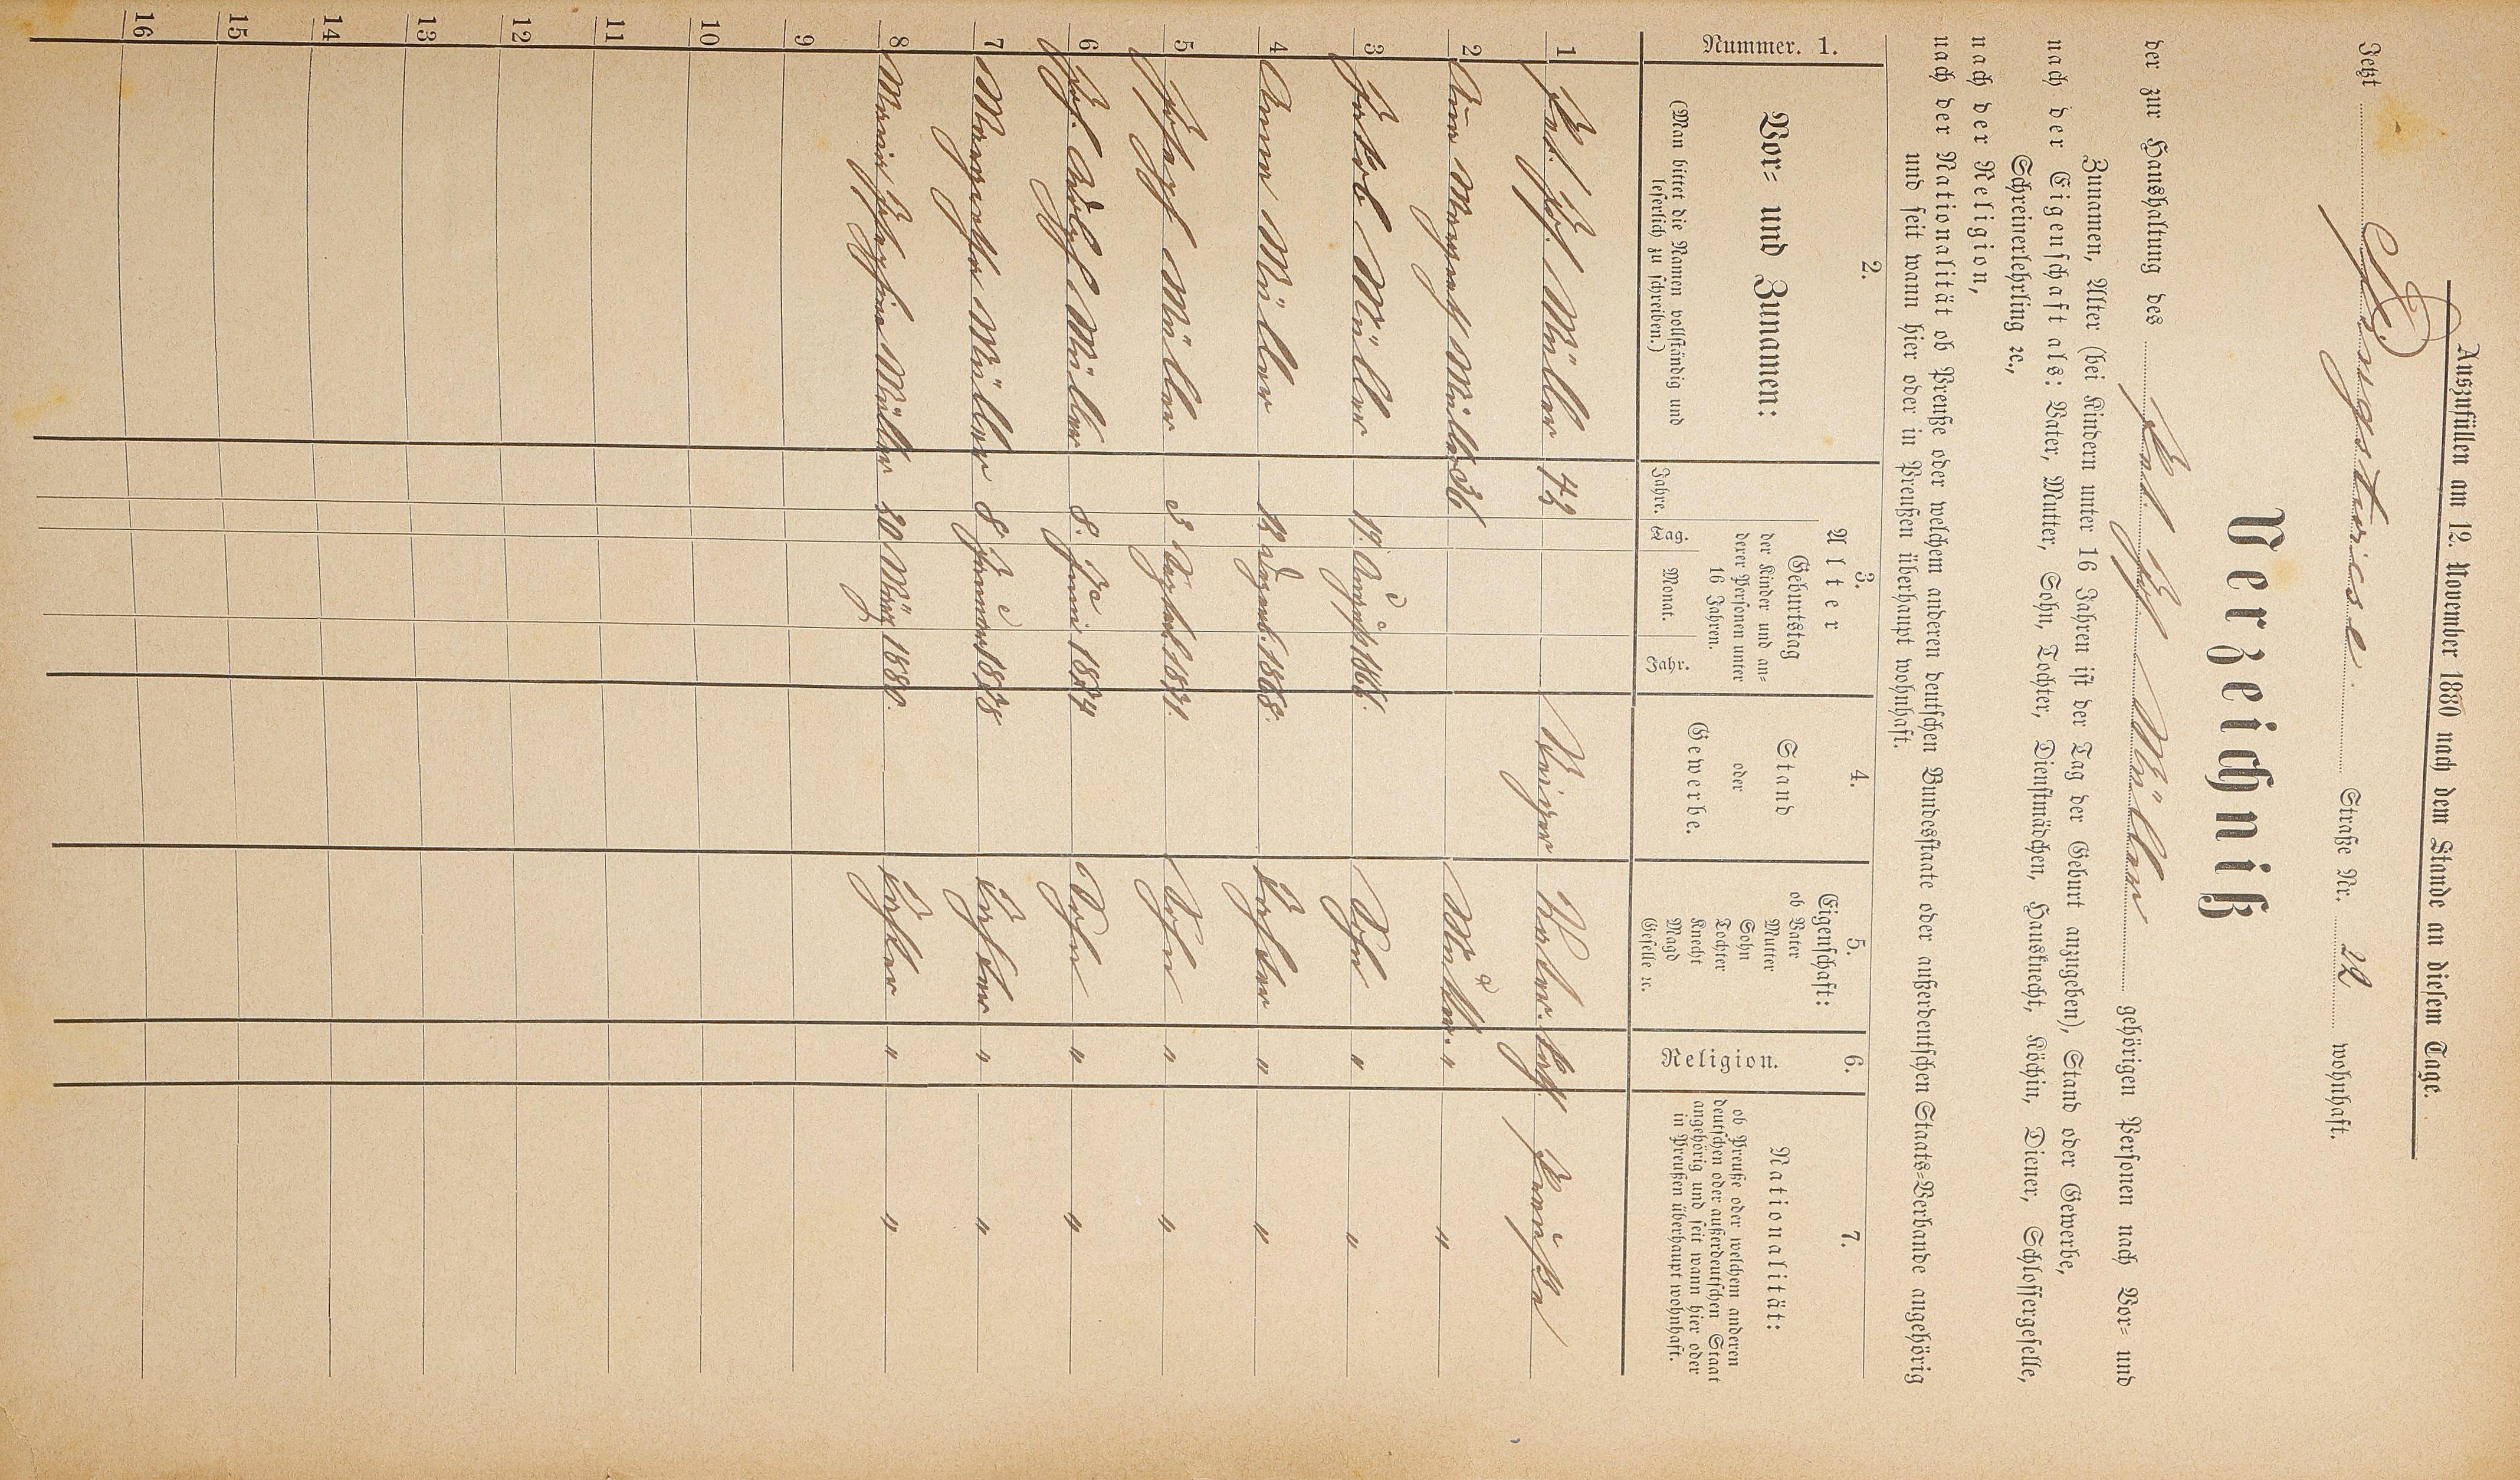 Auszufüllen am 12. November 1880 nach dem Stande an diesem Tage.
Jetzt Straße Nr. 22 wohnhaft.
Verzeichniß
der zur Haushaltung des Müller gehörigen Personen nach Vor= und
Zunamen, Alter (bei Kindern unter 16 Jahren ist der Tag der Geburt anzugeben), Stand oder Gewerbe,
nach der Eigenschaft als: Vater, Mutter, Sohn, Tochter, Dienstmädchen, Hausknecht, Köchin, Diener, Schlossergeselle,
Schreinerlehrling ꝛc.,
nach der Religion,
nach der Nationalität ob Preuße oder welchem anderen deutschen Bundesstaate oder außerdeutschen Staats=Verbande angehörig
und seit wann hier oder in Preußen überhaupt wohnhaft.
Nummer. 1.
2.
Vor= und Zunamen:
(Man bittet die Namen vollständig und
leserlich zu schreiben.)
3.
Alter
Geburtstag
der Kinder und an=
derer Personen unter
16 Jahren.
Jahre. Tag. Monat. Jahr.
4.
Stand
oder
Gewerbe.
5.
Eigenschaft:
ob Vater
Mutter
Sohn
Tochter
Knecht
Magd
Geselle ꝛc.
6.
Religion.
7.
Nationalität:
ob Preuße oder welchem anderen
deutschen oder außerdeutschen Staat
angehörig und seit wann hier oder
in Preußen überhaupt wohnhaft.
1 Müller 43 Winzer Vater Kath. Preuße
2 Anna Margareth Müller 36 Mutter. " "
3 Jakob Müller 19. August 1866. Sohn " "
4 Anna Müller 12 Dezemb. 1868. Tochter " "
5 Joseph Müller 3 1871. Sohn " "
6 Joh. Adolf Müller 8. Juni 1874 Sohn " "
7 Margretha Müller 8. Januar 1878 Tochter " "
8 Maria Josephine Müller 30 März 1880. Tochter " "
9
10
11
12
13
14
15
16